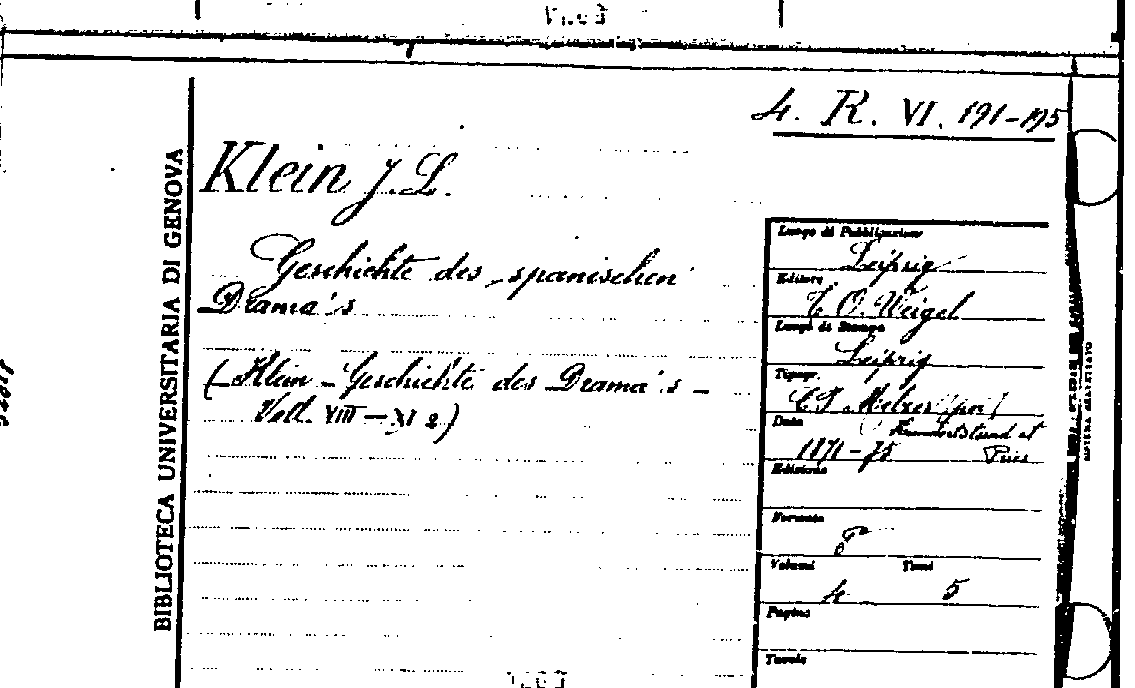 4. R. VI. 191-195
BIBLIOTECA UNIVERSITARIA DI GENOVA
Klein J. L.
Geschichte des spanischen
Drama's
(Klein - Geschichte des Drama's -
Voll. VIII - XI 2)
Luogo di Pubblicazione
Leipzig
Editore
T. O. Weigel
Luogo di Stampa
Leipzig
Tipogr.
Data
1871-75
Edizione
Formato
8°
Volumi Tomi
4 5
Pagine
Tavole